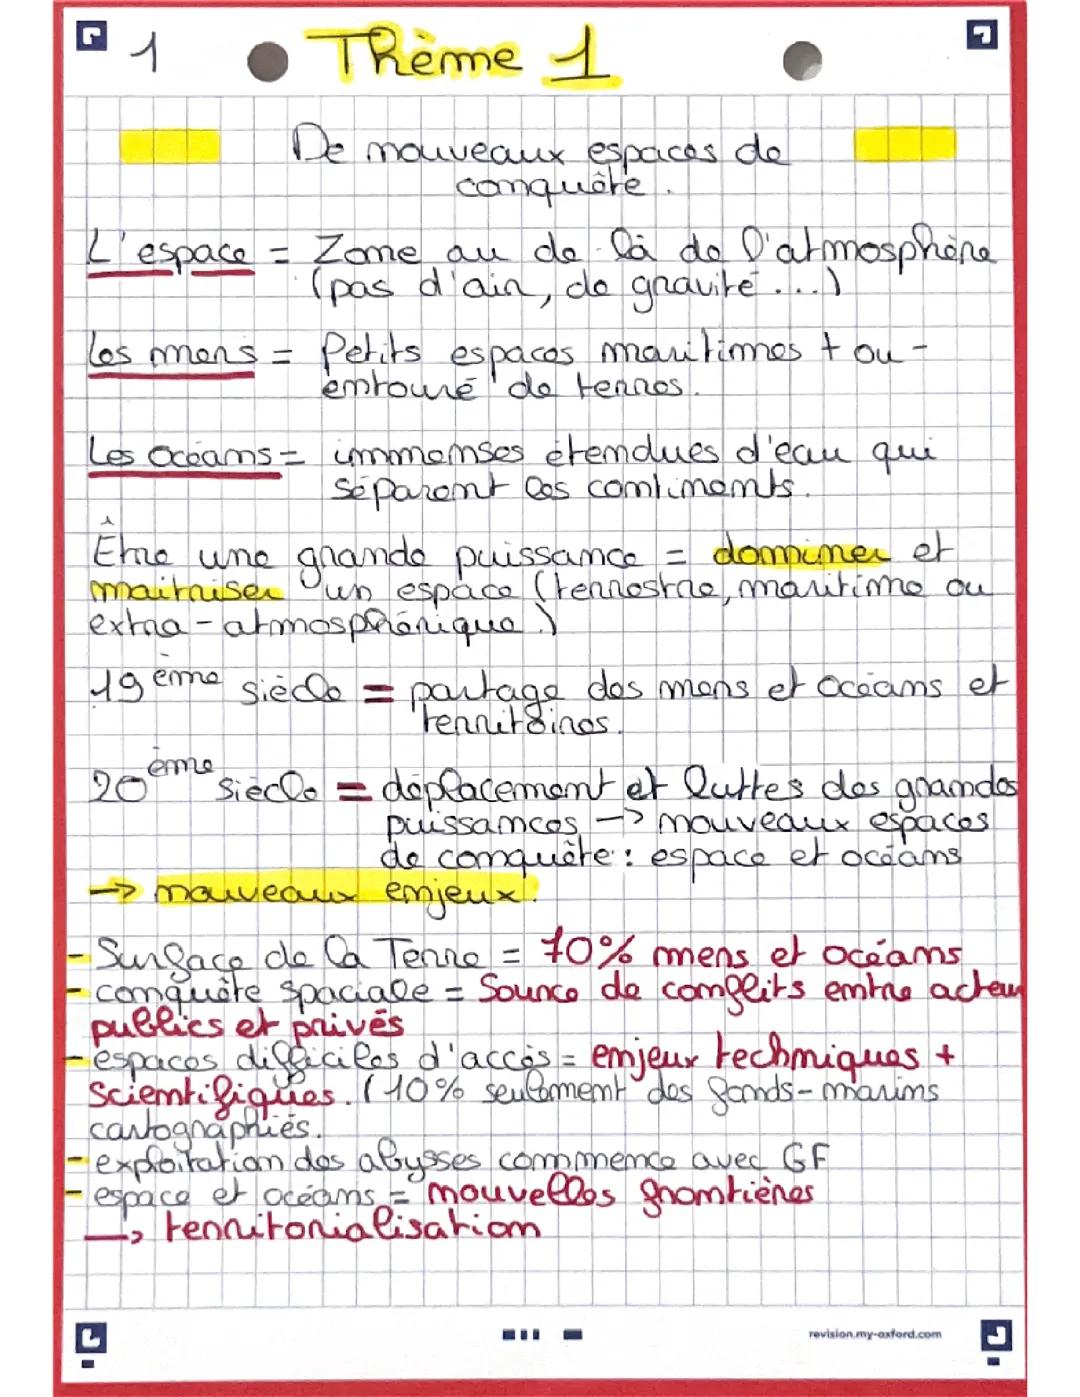 1 Thème 1
De nouveaux espaces de
conquête.
L'espace = Zone au de-là de l'atmosphère
(pas d'air, de gravité ...)
Les mers = Petits espaces maritimes + ou -
entouré de terres.
Les Océans = immenses étendues d'eau qui
séparent les continents.
Être une grande puissance = dominer et
maîtriser un espace (terrestre, maritime ou
extra-atmosphérique.)
19ème siècle = partage des mers et océans et
territoires.
20ème siècle = déplacement et luttes des grandes
puissances -> nouveaux espaces
de conquête : espace et océans
-> nouveaux enjeux.
- Surface de la Terre = 70% mers et océans
- conquête spaciale = source de conflits entre acteur
publics et privés
- espaces difficiles d'accès = enjeux techniques +
scientifiques. (10% seulement des fonds-marins
cartographiés.
- exploitation des abysses commence avec GF
- espace et océans = nouvelles frontières
-> territorialisation
revision.my-oxford.com